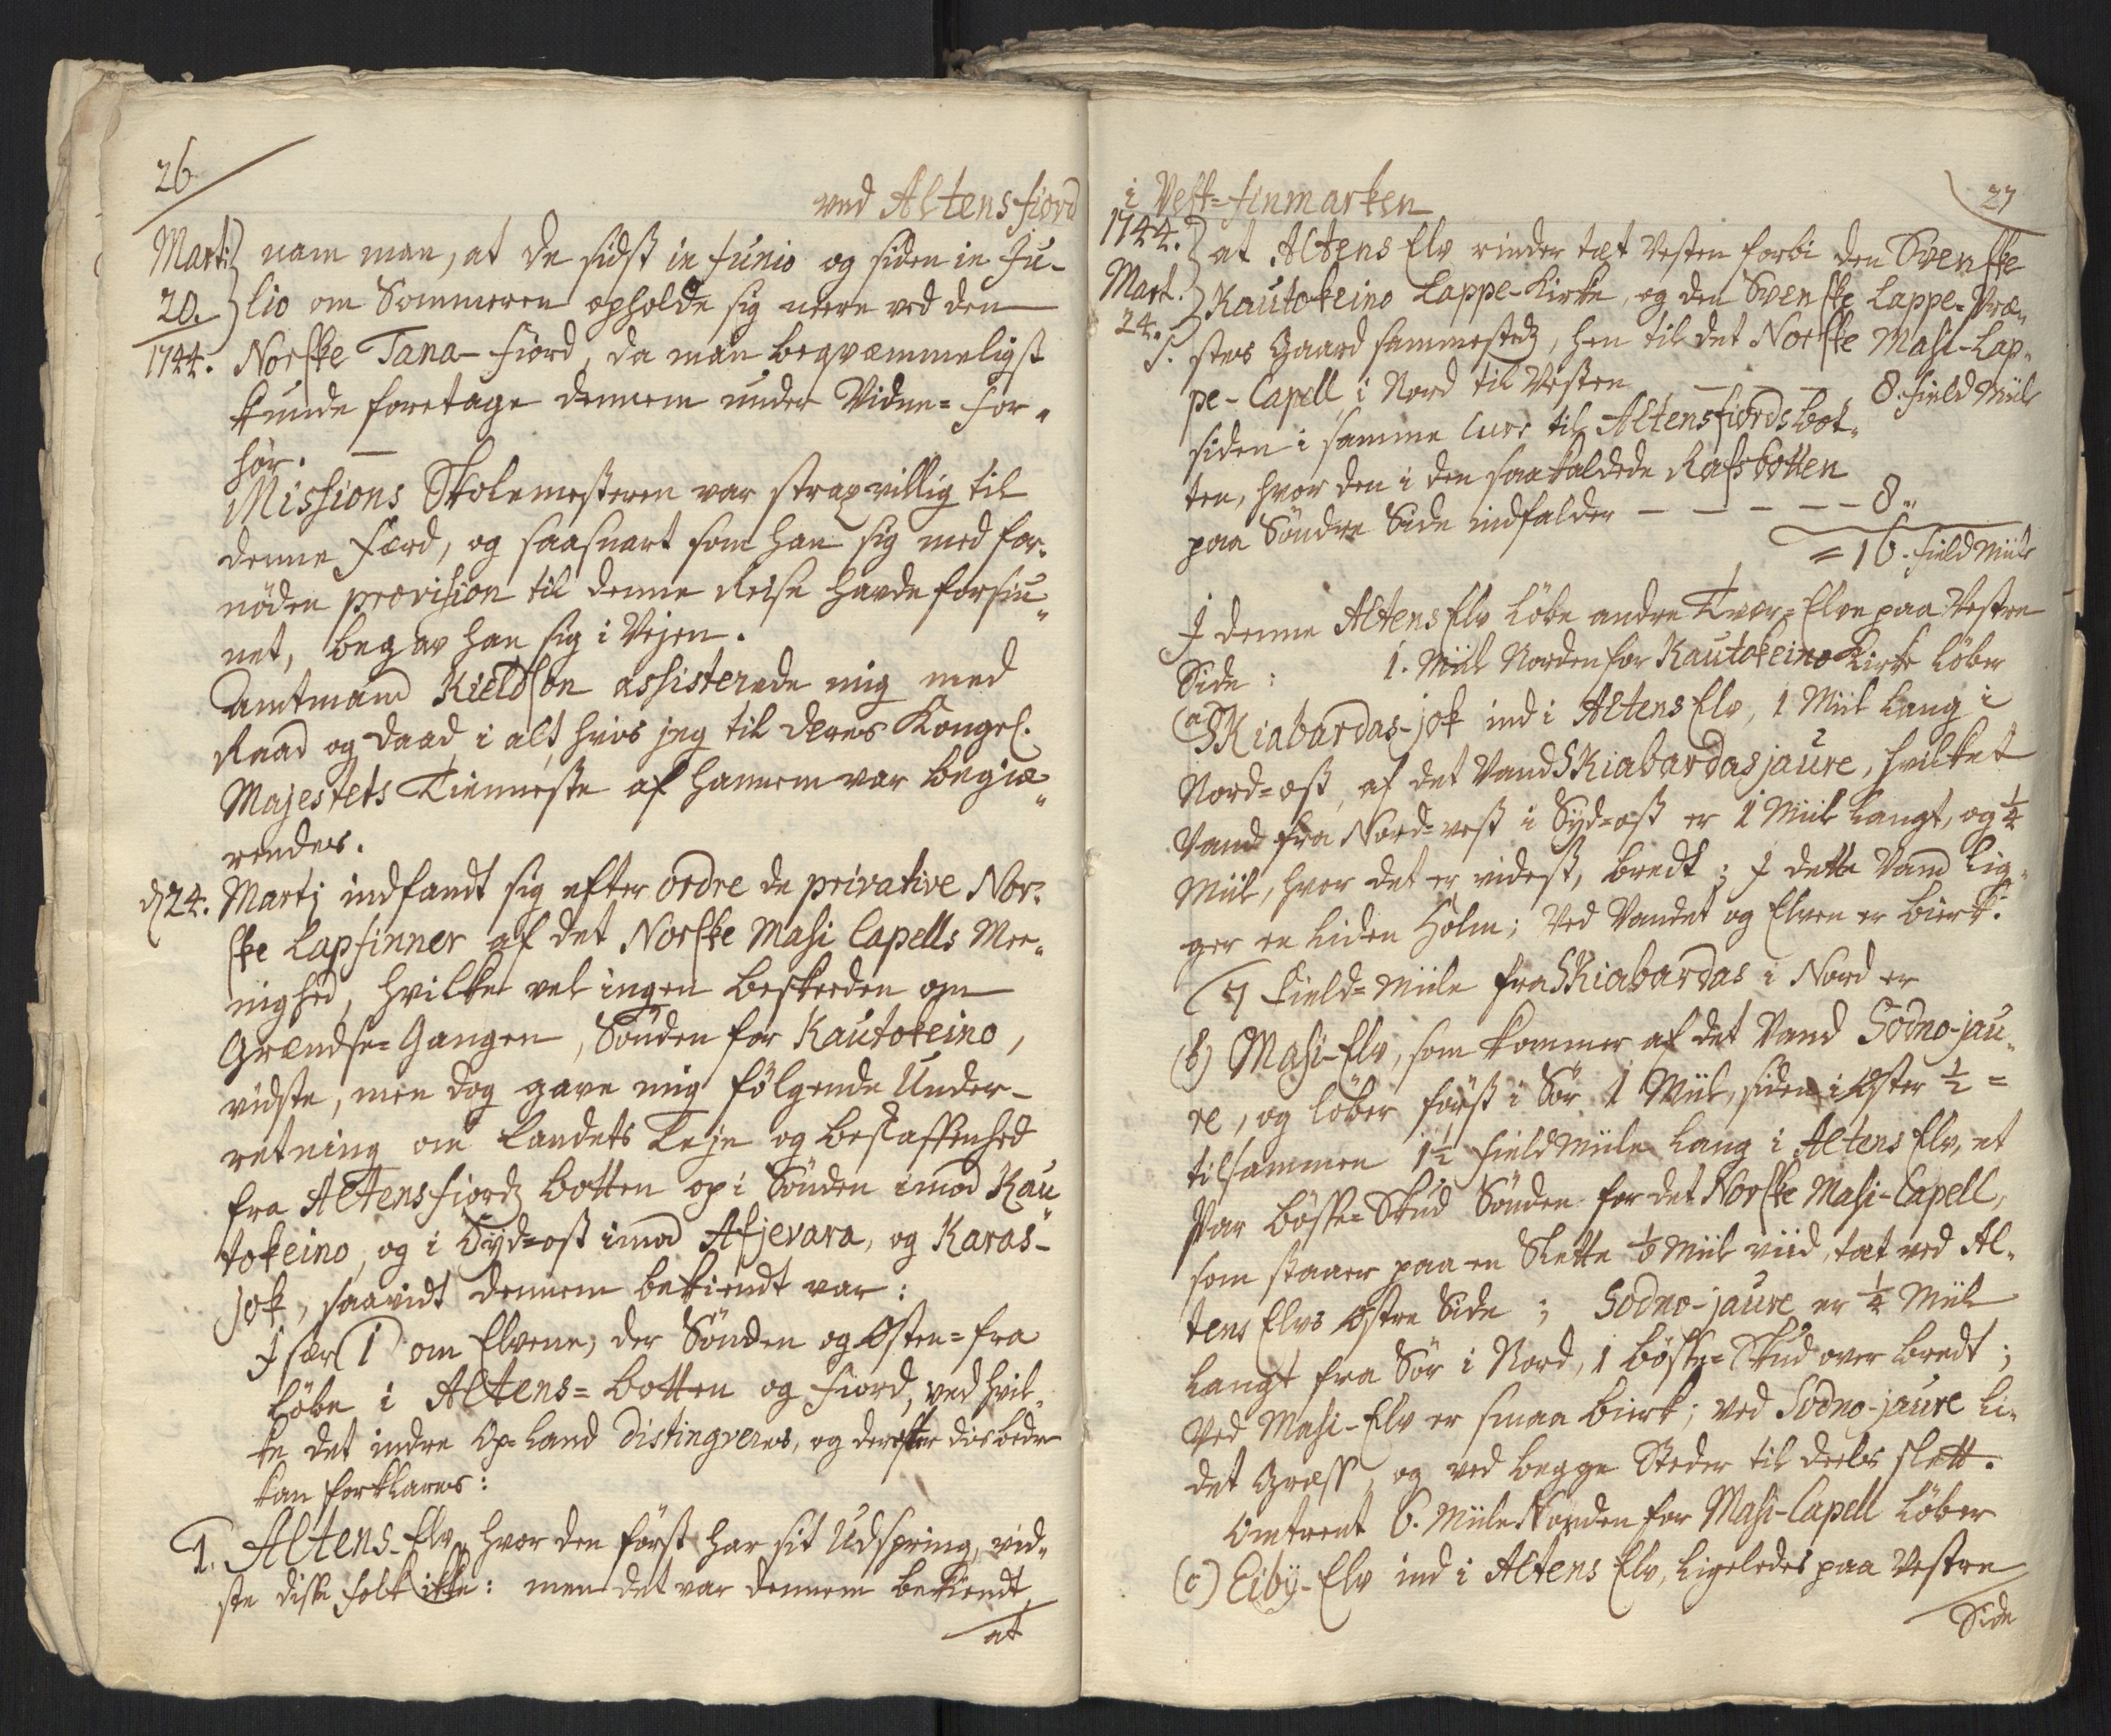 26
ved Altens fiord
Martj
20.
1744.
nam man, at de sidst in Junio og siden in Ju-
lio om Sommeren opholde sig neere ved den
Norske Tana-fiord, da man beqvæmmeligst
kunde foretage dennem under Vidne-For-
hör. —
Missions Skolemesteren var strax villig til
denne Færd, og saasnart som han sig med for-
nöden provision til denne Reise havde forsiu-
net, begav han sig i Vejen.
Amtmand Kieldson assisterede mig med
Raad og Daad i alt hvis jeg til Deres Kongel.
Majestets Tienneste af hannem var begiæ-
rendes.
d 24. Martj indfandt sig efter ordre de privative Nor-
ske Lapfinner af det Norske Masi Capells Mee-
nighed, hvilke vel ingen beskeeden om
Grændse-Gangen, Sönden for Kautokeino,
vidste, men dog gave mig fölgende Under-
retning om Landets Leje og beskaffenhed
fra Altensfiords botten op i Sönden imod Kau-
tokeino, og i Syd-ost imod Afjevara, og Karas-
jok, saavidt dennem bekiendt var:
Jsær (1) om Elvene, der Sönden og Östen-fra
löbe i Altens-botten og Fiord, ved hvil-
ke det indre Op-Land distingveres, og derefter dis bedre
kan forklares:
1. Altens-Elv, hvor den först har sit Udspring, vid-
ste disse folk ikke: men det var dennem bekiendt
at
i Vest-finmarken
27
1744.
Mart.
24.
at Altens Elv rinder tæt Vesten forbi den Svenske
Kautokeino Lappe-Kirke, og den Svenske Lappe-Præ-
stes Gaard sammestedz, hen til det Norske Masi-Lap-
pe-Capell i Nord til Vesten — — — 8. field Miile
siden i samme Curs til Altensfiords bot-
ten, hvor den i den saakaldede Rafsbotten
paa Söndre Side indfalder — — — — — 8..
= 16. field Miile
J denne Altens Elv löbe andre Tvær-Elve paa Vestre
Side: 1. Miil Norden for Kautokeino Kirke löber
(a) Skiabardas-jok ind i Altens Elv, 1 Miil lang i
Nord-ost, af det Vand Skiabardasjaure, hvilket
Vand fra Nord-vest i Syd-ost er 1 Miil langt, og 1/4
Miil, hvor det er videst, bredt; J dette Vand lig-
ger en liden Holm; Ved Vandet og Elven er bierk.
7 Field-Miile fra Skiabardas i Nord er
(b) Masi-Elv, som kommer af det Vand Sodno-jau-
re, og löber först i Sör 1 Miil, siden i Öster 1/2 =
tilsammen 1 1/2 field Miile lang i Altens Elv, et
Par bösse-Skud Sönden for det Norske Masi-Capell,
som staaer paa en Slette 1/8 Miil viid, tæt ved Al-
tens Elvs Östre Side; Sodno-jaure er 1/4 Miil
langt fra Sör i Nord, 1 bösse-Skud over bredt;
Ved Masi-Elv er smaa bierk; ved Sodno-jaure li-
det Græss, og ved begge Steder til deels slett.
Omtrent 6. Miile Norden for Masi-Capell löber
(c) Eiby-Elv ind i Altens Elv, ligeledes paa Vestre
Side